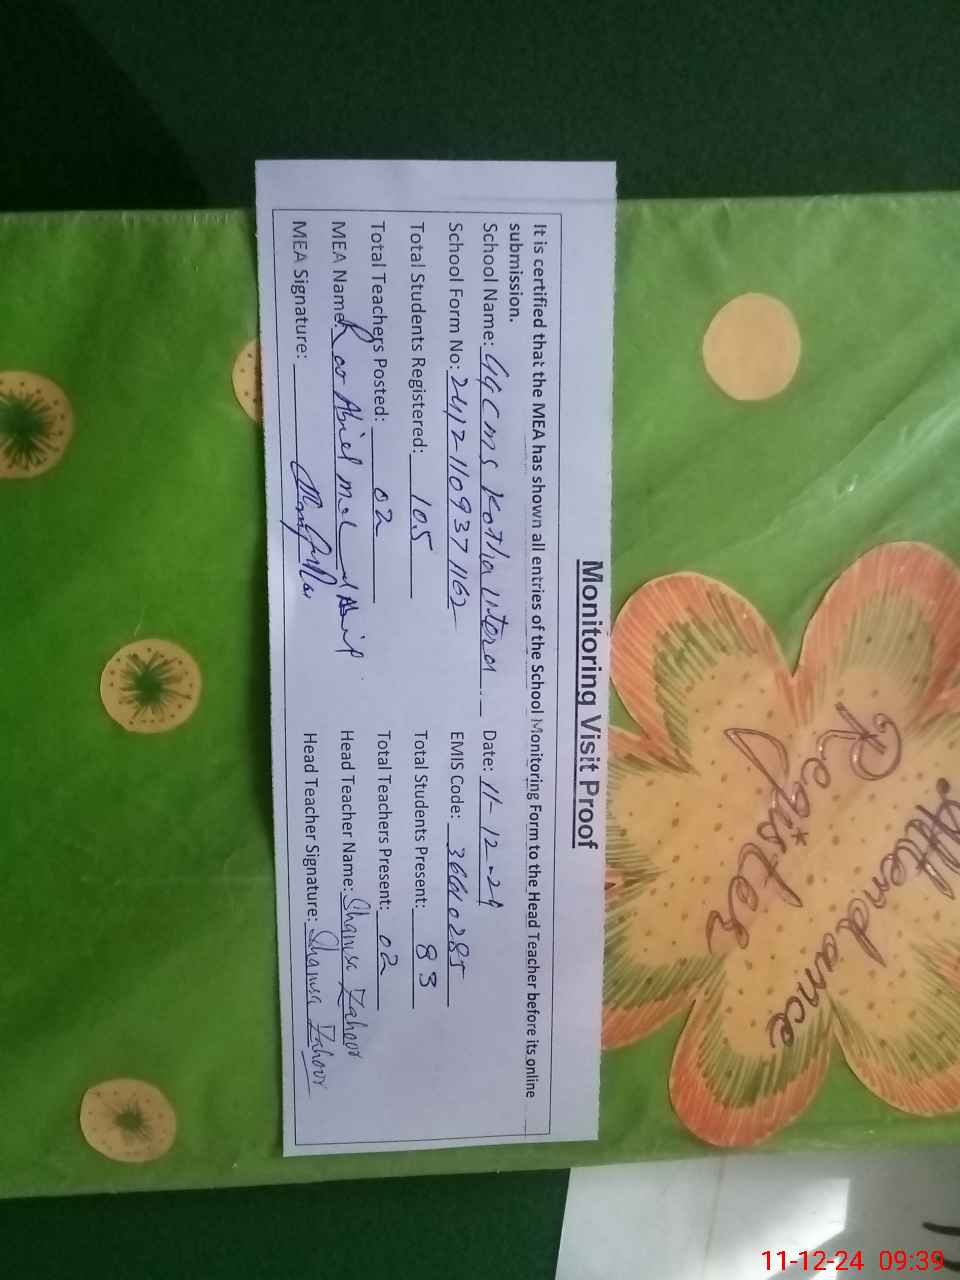 Monitoring Visit Proof
It is certified that the MEA has shown all entries of the School Monitoring Form to the Head Teacher before its online
submission.
School Name: GGCMS Kotha Date: 11-12-24
School Form No: 24121109371162 EMIS Code: 36610285
Total Students Registered: 105 Total Students Present: 83
Total Teachers Posted: 02 Total Teachers Present: 02
MEA Name: Head Teacher Name: Shamsa Zahoor
MEA Signature: Head Teacher Signature: Shamsa Zahoor
Attendance
Register
11-12-24 09:39